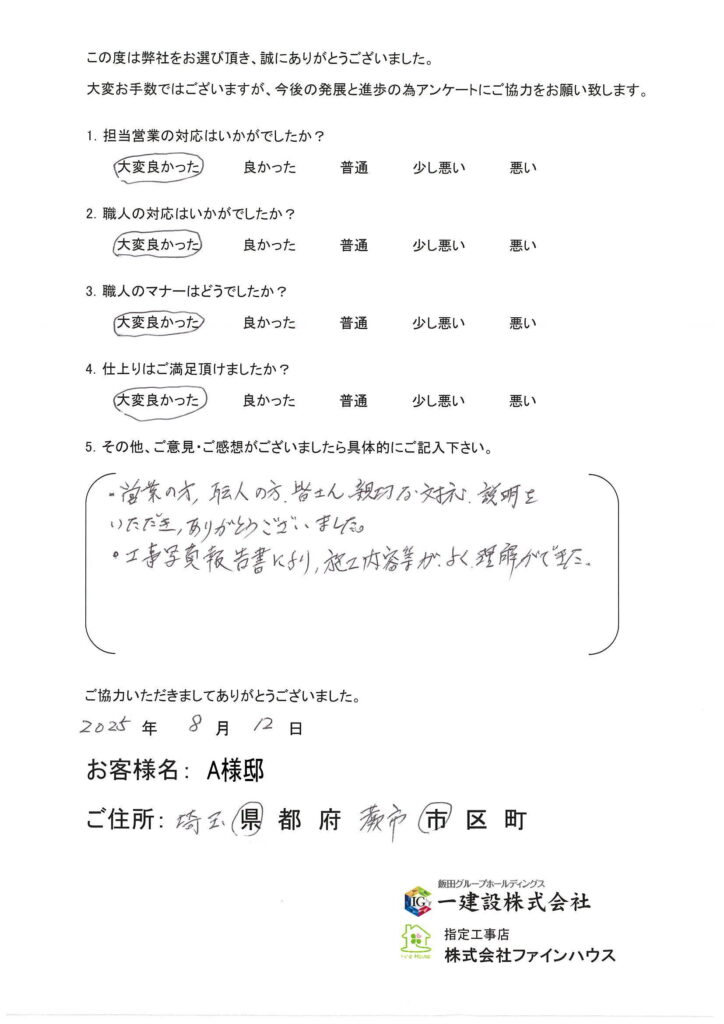 この度は弊社をお選び頂き、誠にありがとうございました。
大変お手数ではございますが、今後の発展と進歩の為アンケートにご協力をお願い致します。
1. 担当営業の対応はいかがでしたか？
大変良かった 良かった 普通 少し悪い 悪い
2. 職人の対応はいかがでしたか？
大変良かった 良かった 普通 少し悪い 悪い
3. 職人のマナーはどうでしたか？
大変良かった 良かった 普通 少し悪い 悪い
4. 仕上りはご満足頂けましたか？
大変良かった 良かった 普通 少し悪い 悪い
5. その他、ご意見・ご感想がございましたら具体的にご記入下さい。
・営業の方、職人の方、皆さん親切な対応、説明を
いただき、ありがとうございました。
・工事写真報告書により、施工内容等が、よく理解ができた。
ご協力いただきましてありがとうございました。
2025 年 8 月 12 日
お客様名： A様邸
ご住所： 埼玉 県 都 府 蕨市 市 区 町
飯田グループホールディングス
IG 一建設株式会社
指定工事店
Fine House 株式会社ファインハウス